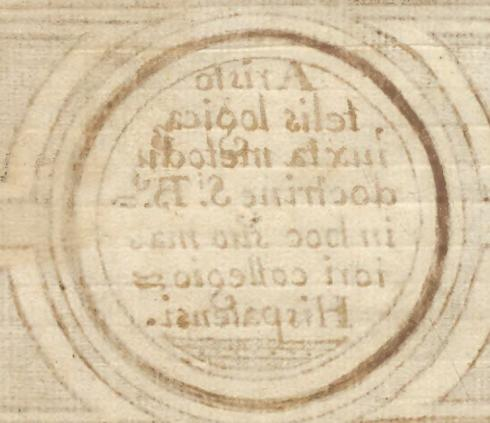 Aristo
telis logica,
iuxta metodũ
doctrine S. B.
in hoc suo ma
iori collegio
Hispalensi.